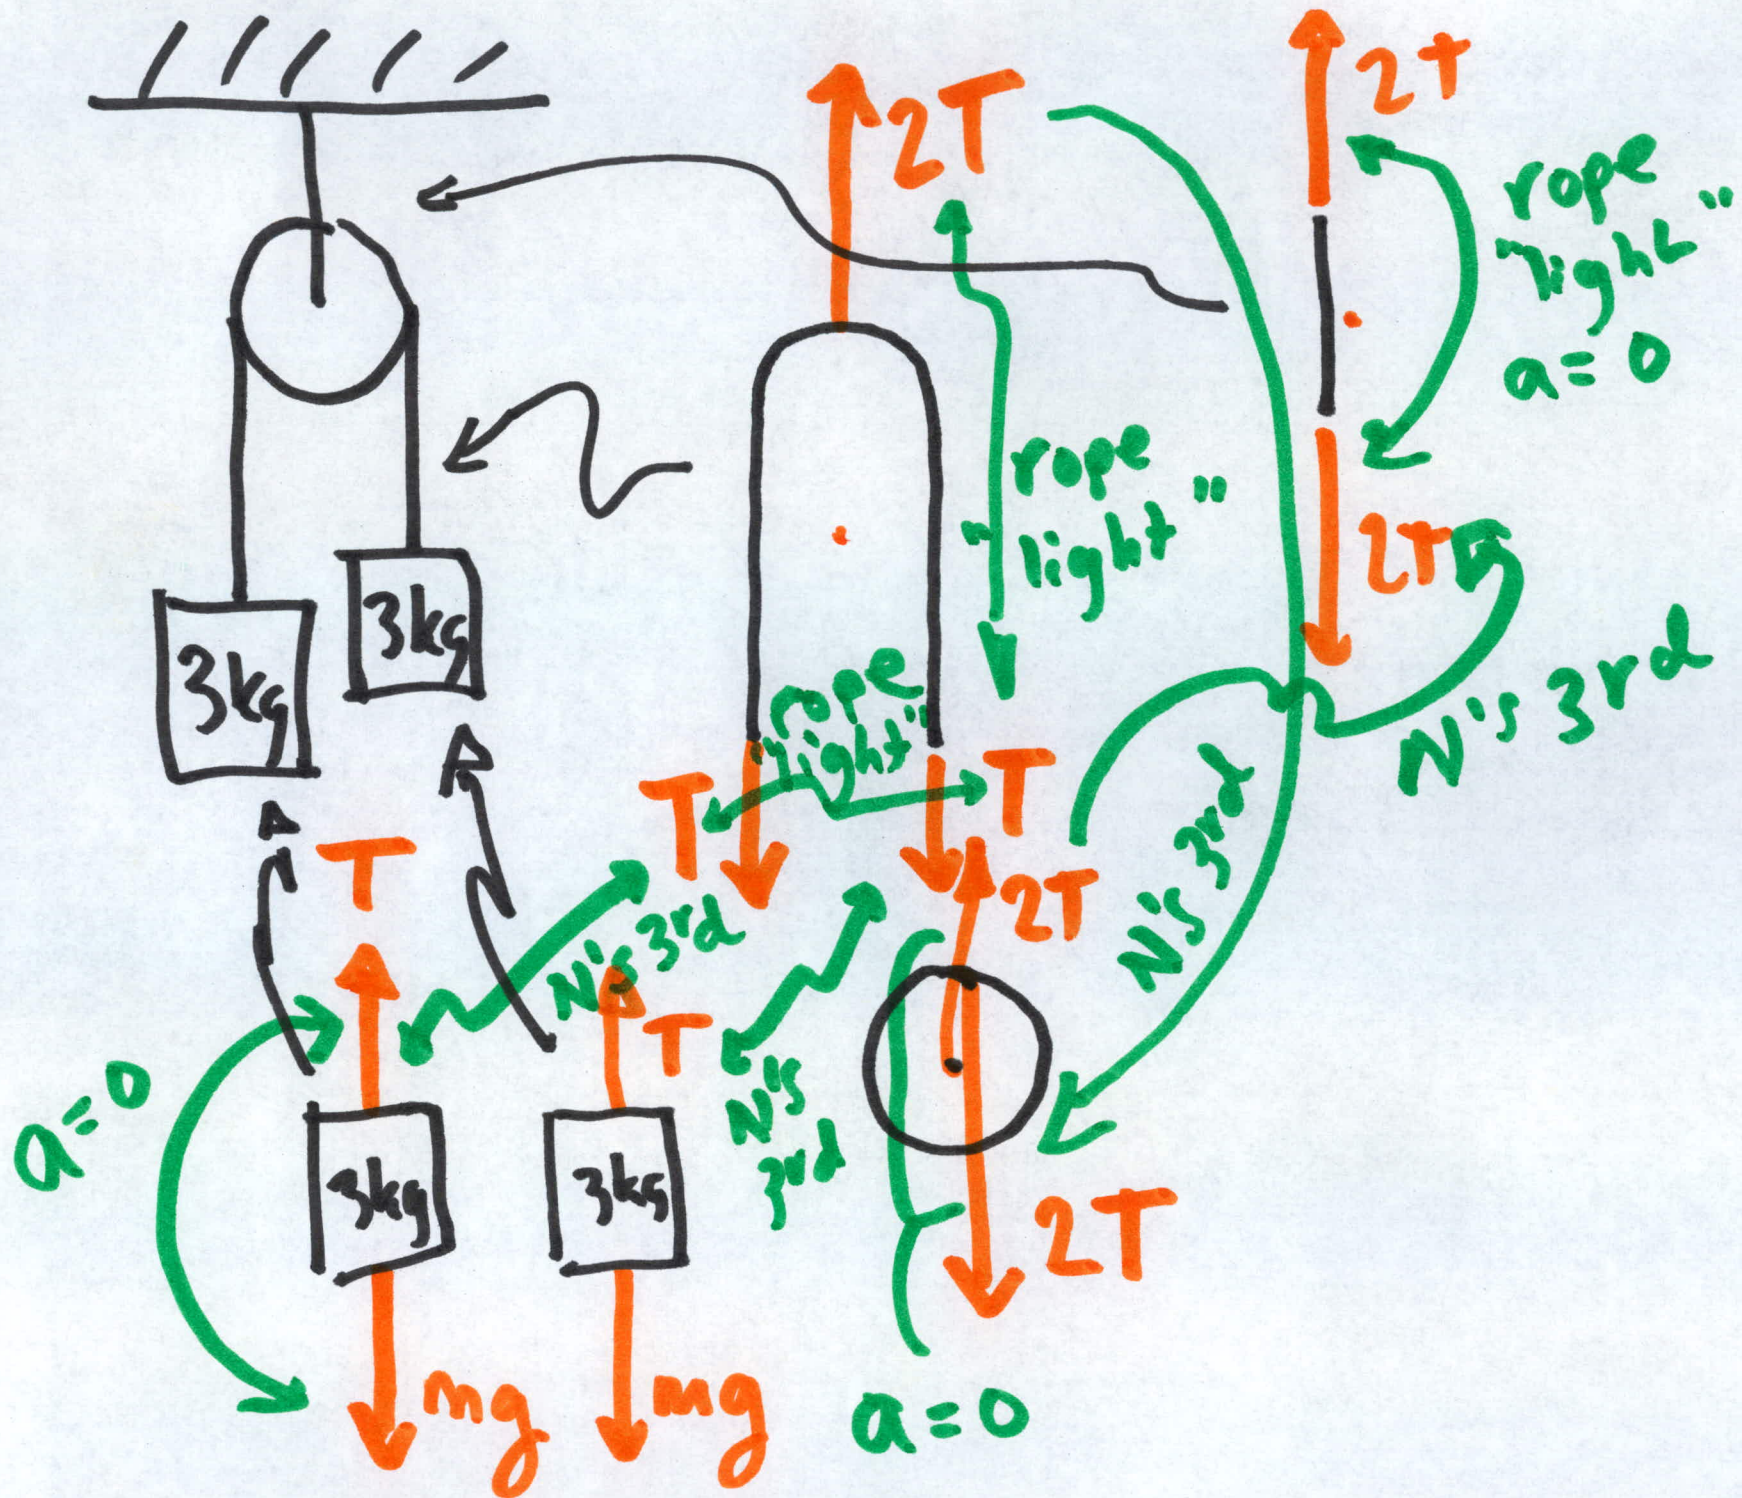 2T
2T
rope
"light"
a=0
rope
"light"
2T
N's 3rd
3kg
3kg
rope
"light"
T
T
T
2T
N's 3rd
N's 3rd
T
N's
3rd
a=0
3kg
3kg
2T
mg
mg
a=0